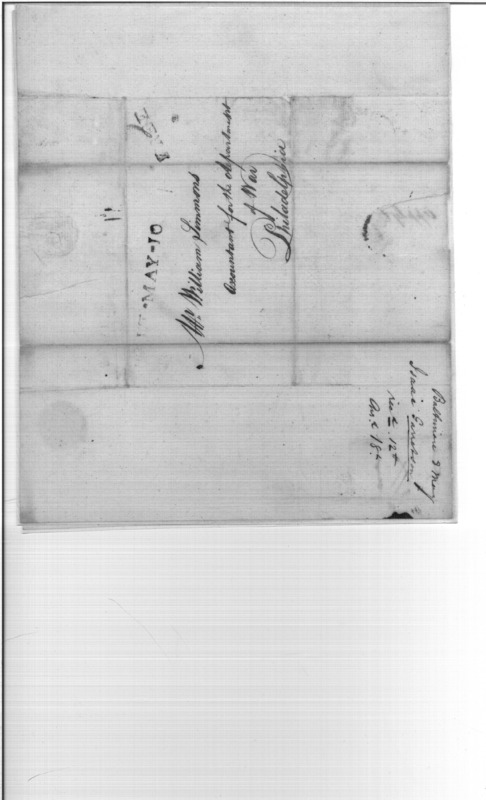 MAY-10
Mr. William Simmons
Accountant for the department
of War
Philadelphia
Baltimore 8 May
Isaac
recd. 12th
Ans. 18th